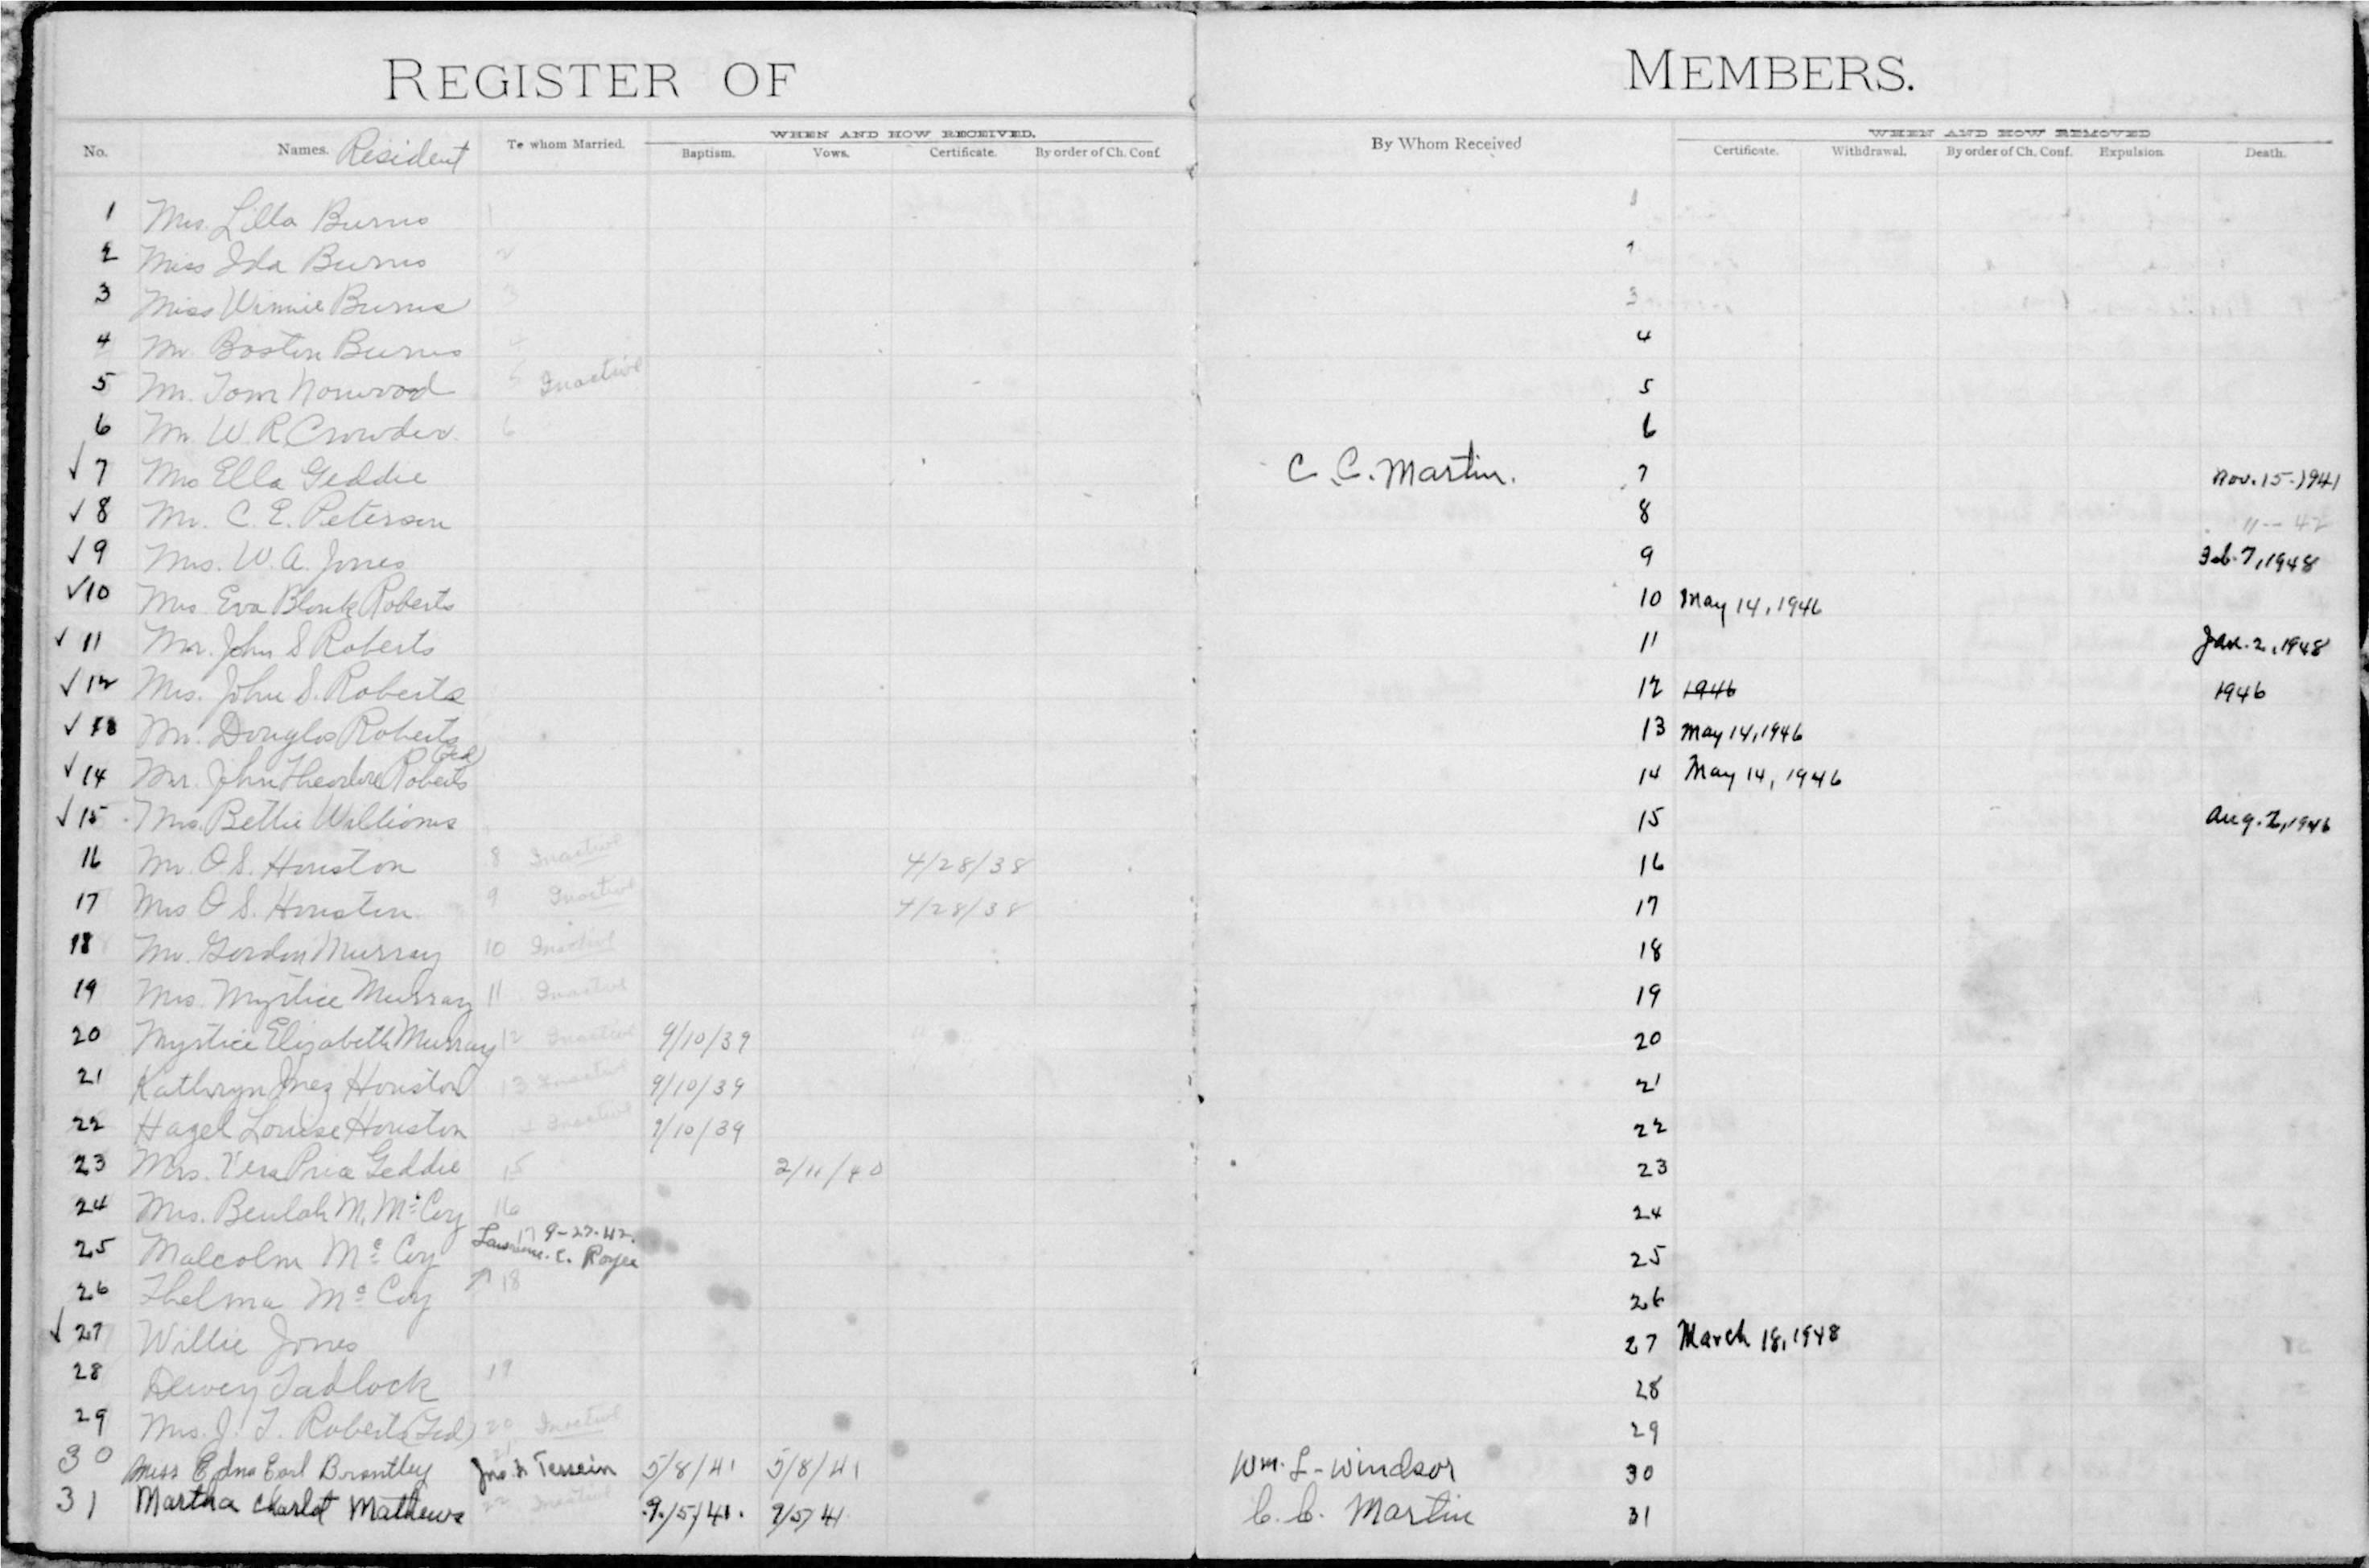 REGISTER OF MEMBERS.
No. Names. Resident To whom Married. WHEN AND HOW RECEIVED. By Whom Received WHEN AND HOW REMOVED
Baptism. Vows. Certificate. By order of Ch. Conf. Certificate. Withdrawal. By order of Ch. Conf. Expulsion. Death.
1 Mrs. Lilla Burns 1 1
2 Miss Ida Burns 2
3 Miss Winnie Burns 3 3
4 Mr. Boston Burns 4 4
5 Mr. Tom Norwood 5 Inactive 5
6 Mr. W. R. Crowder 6 6
✓ 7 Mrs Ella Geddie C. C. Martin. 7 Nov. 15-1941
✓ 8 Mr. C. E. Peterson 8 11--42
✓ 9 Mrs. W. A. Jones 9 Feb. 7, 1948
✓ 10 Mrs. Eva Roberts 10 May 14, 1946
✓ 11 Mr. John S Roberts 11 Jan. 2, 1948
✓ 12 Mrs. John S. Roberts 12 1946 1946
✓ 13 Mr. Douglas Roberts 13 May 14, 1946
✓ 14 Mr. John Theodore Roberts (Ted) 14 May 14, 1946
✓ 15 Mrs. Bettie Williams 15 Aug. 2, 1946
16 Mr. O. S. Houston 8 Inactive 4/28/38 16
17 Mrs O. S. Houston 9 Inactive 4/28/38 17
18 Mr. Gordon Murray 10 Inactive 18
19 Mrs. Myrtice Murray 11 Inactive 19
20 Myrtice Elizabeth Murray 12 Inactive 9/10/39 20
21 Kathryn Inez Houston 13 Inactive 9/10/39 21
22 Hazel Louise Houston Inactive 9/10/39 22
23 Mrs. Vera Price Geddie 15 2/11/40 23
24 Mrs. Beulah M. McCoy 16 24
17 9-27-42.
25 Malcolm McCoy Lawrence. C. Royer 25
26 Thelma McCoy ↑ 18 26
✓ 27 Willie Jones 27 March 18, 1948
28 Dewey Tadlock 19 28
29 Mrs. J. T. Roberts (Ted) 20 Inactive 29
30 Miss Edna Earl Brantley 21 Jno. Tessein 5/8/41 5/8/41 Wm. L. Windsor 30
31 Martha Charlot Mathews 22 Inactive 9/5/41. 9/5/41 C. C. Martin 31